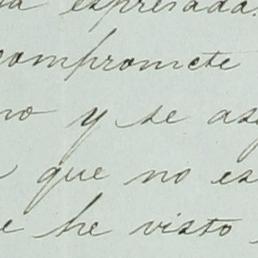 espresada.
compromete
no y se as
que no es
e he visto